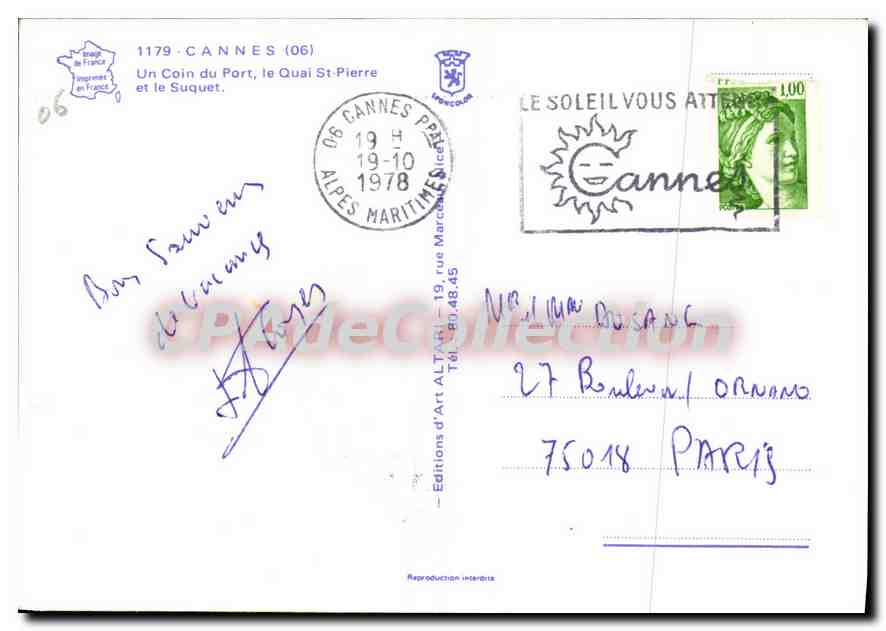 Image
de France
Imprimée
en France
1179 - CANNES (06)
Un Coin du Port, le Quai St-Pierre
et le Suquet.
06
SPORCOLOR
06 CANNES PPAL
19 H
19-10
1978
ALPES MARITIMES
LE SOLEIL VOUS ATTEND
Cannes
1,00
Bons Souvenirs
de Vacances
— Editions d'Art ALTARI — 19, rue Marceau, Nice
Tél. 80.48.45
CPAdeCollection
Mr Mme
27 Boulevard ORNANO
75018 PARIS
Reproduction interdite